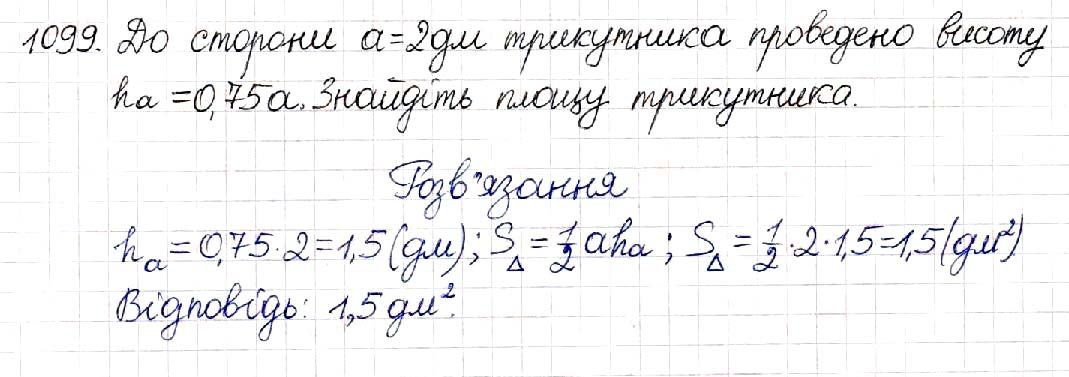 1099. До сторони a=2дм трикутника проведено висоту
hₐ=0,75a. Знайдіть площу трикутника.
Розв'язання
hₐ=0,75·2=1,5(дм); S_Δ=1/2ahₐ; S_Δ=1/2·2·1,5=1,5(дм²)
Відповідь: 1,5дм².